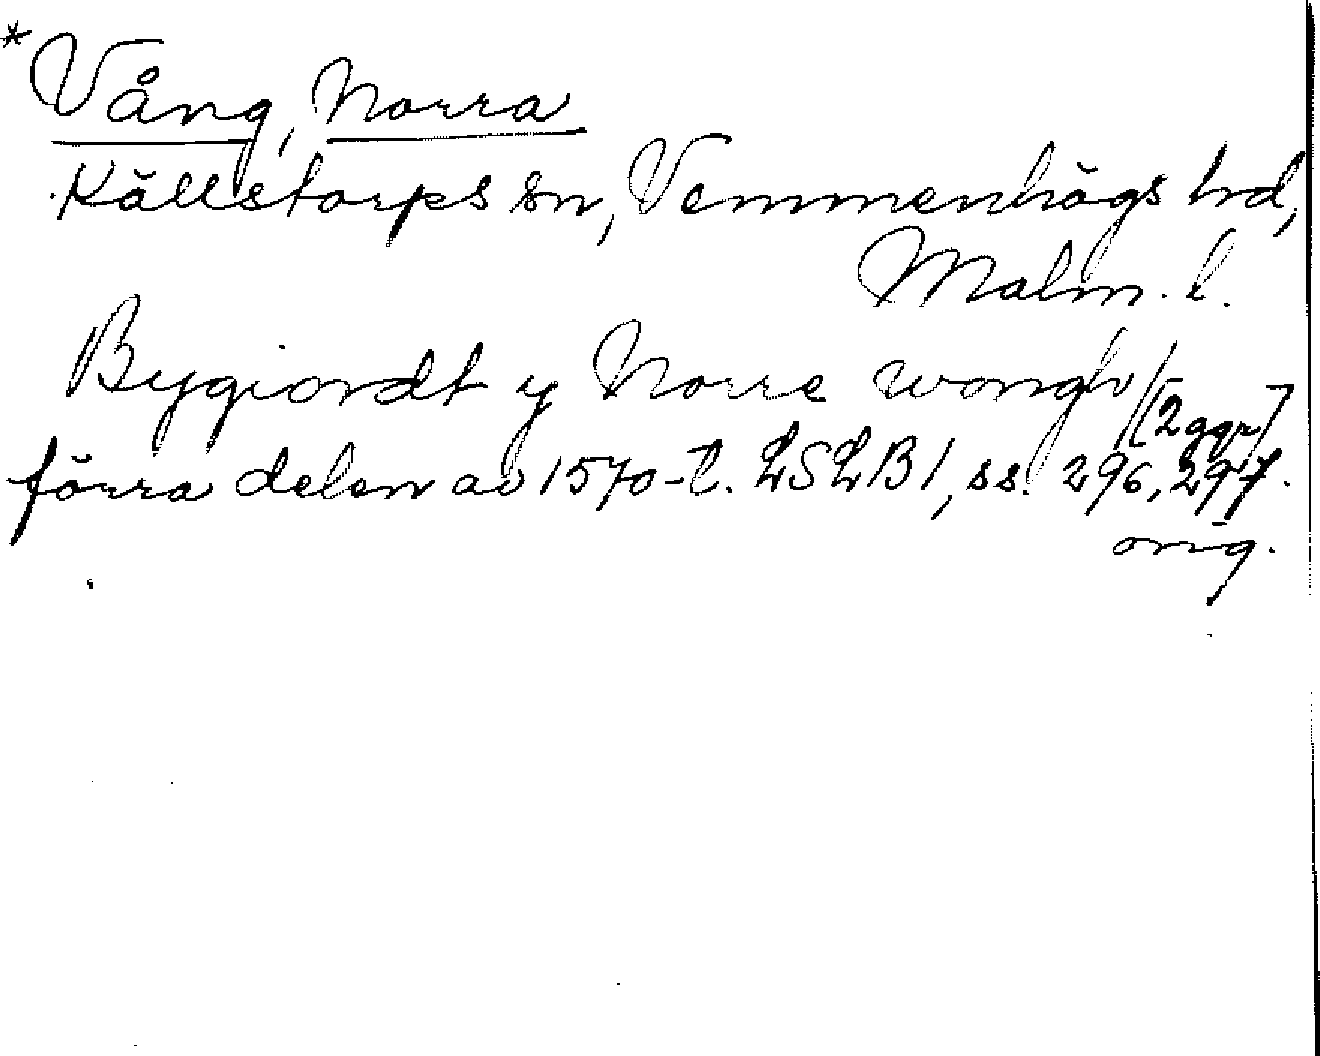 *Vång, Norra
Källstorps sn, Vemmenhögs hd,
Malm. l.
Bygiordt y Norre wongh/[2 ggr]
förra delen av 1570-t. LSLB1, ss. 296, 297.
orig.